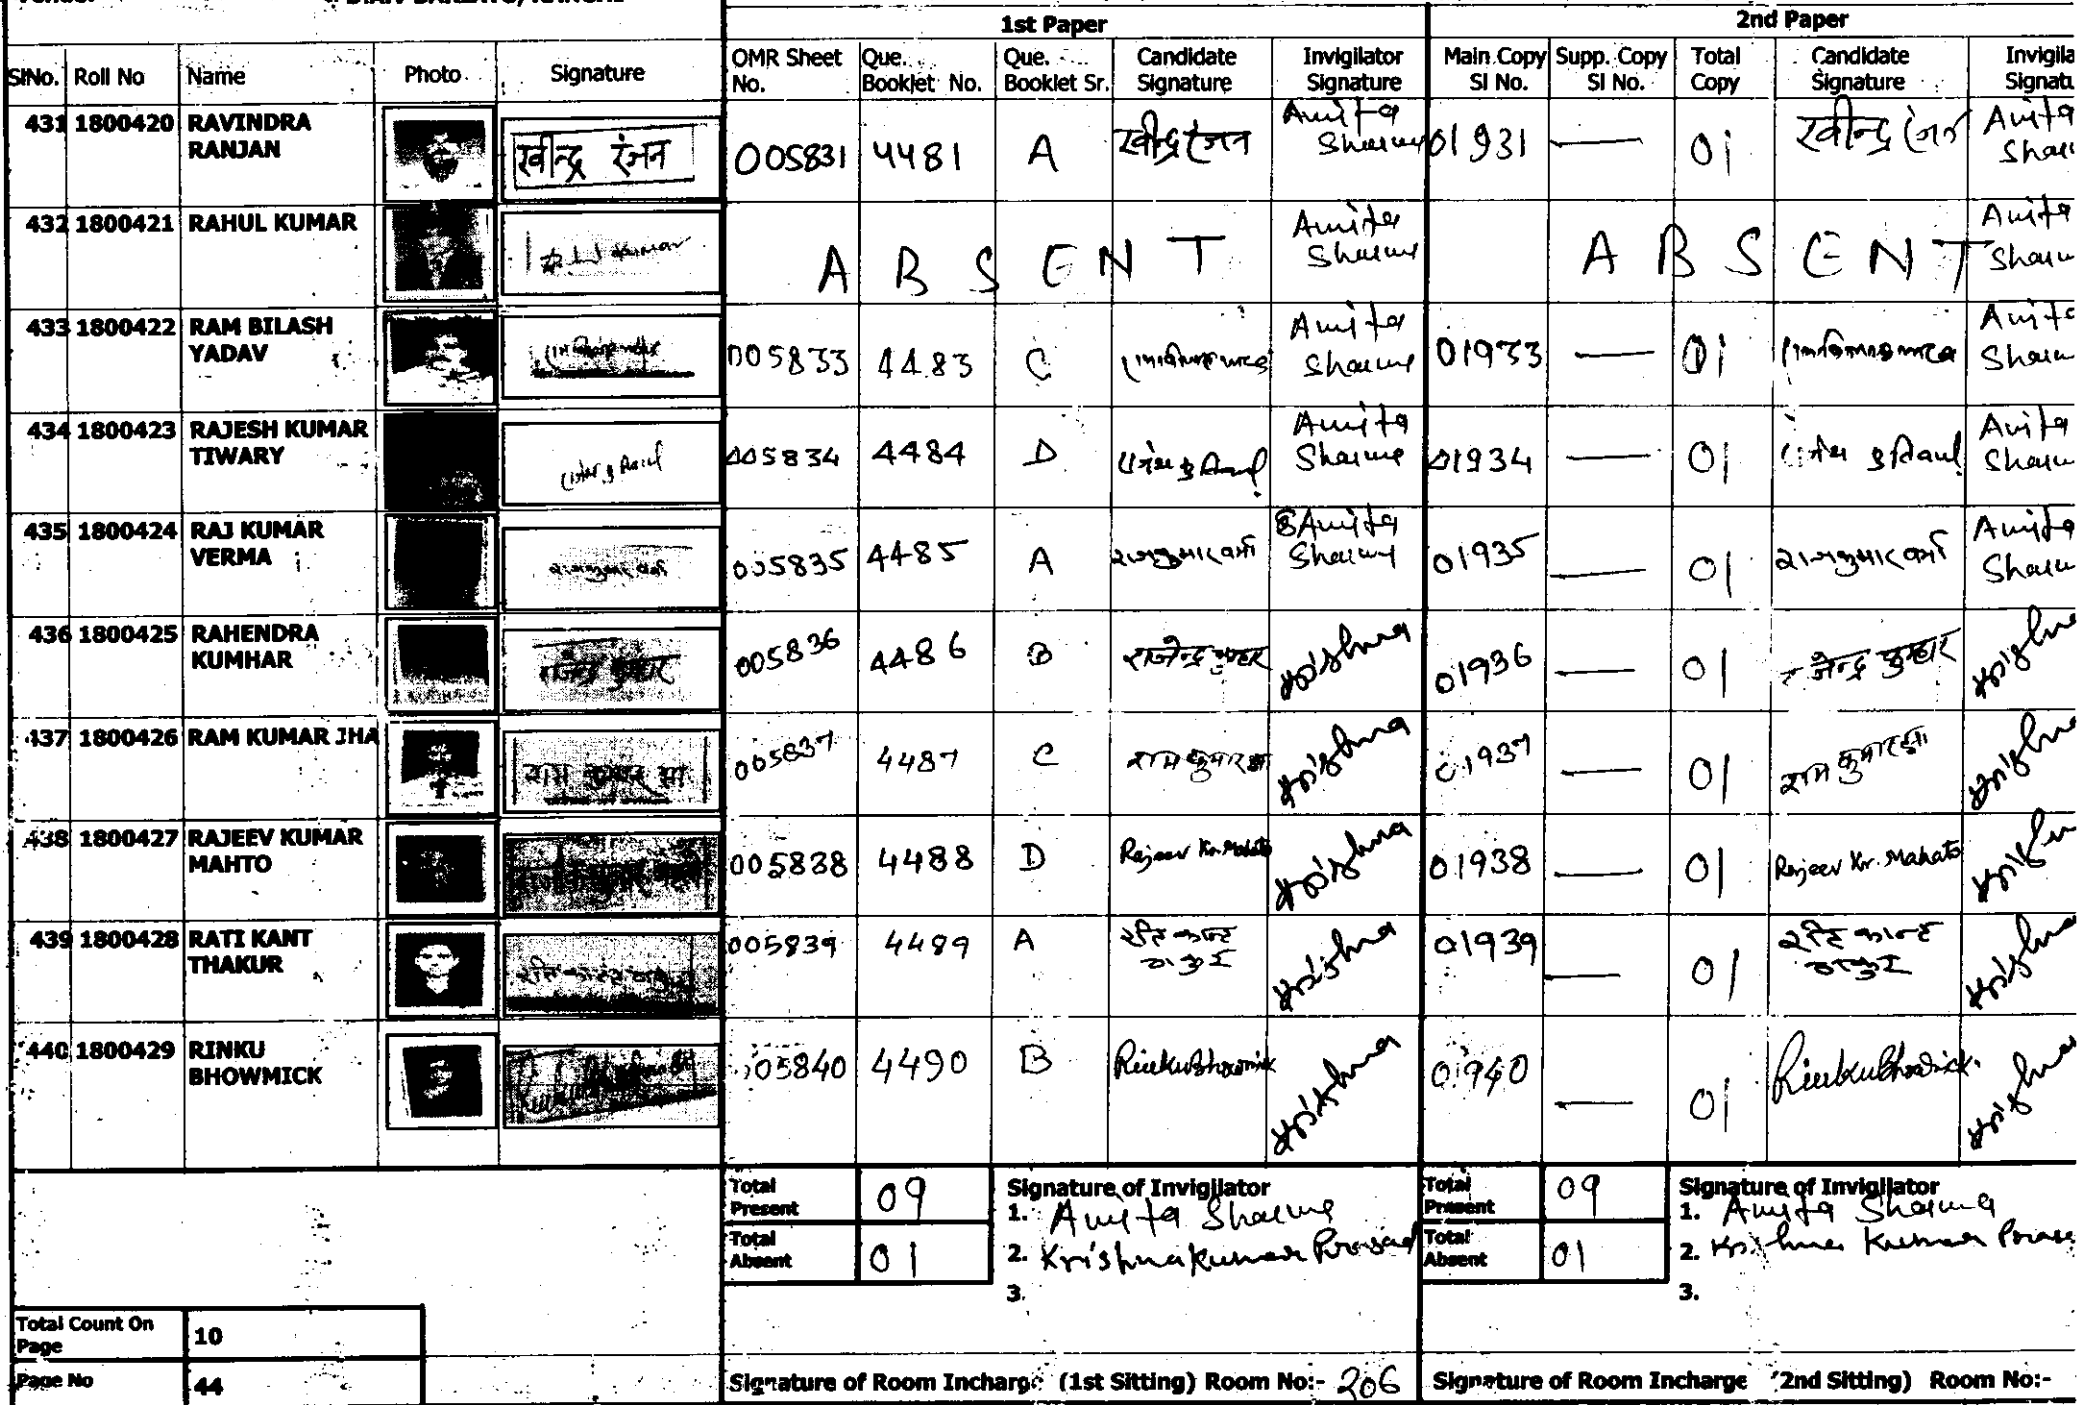 1st Paper 2nd Paper
SlNo. Roll No Name Photo Signature OMR Sheet No. Que. Booklet No. Que. Booklet Sr. Candidate Signature Invigilator Signature Main Copy Sl No. Supp. Copy Sl No. Total Copy Candidate Signature
431 1800420 RAVINDRA RANJAN रवीन्द्र रंजन 005831 4481 A रवीन्द्र रंजन Anita Sharma 01931 — 01 रवीन्द्र रंजन Anita
432 1800421 RAHUL KUMAR Kumar ABSENT Anita Sharma ABSENT Anita
433 1800422 RAM BILASH YADAV 005833 4483 C Anita Sharma 01933 — 01
434 1800423 RAJESH KUMAR TIWARY 005834 4484 D Anita Sharma 01934 — 01 Anita
435 1800424 RAJ KUMAR VERMA राजकुमार वर्मा 005835 4485 A राजकुमार वर्मा Anita Sharma 01935 — 01 राजकुमार वर्मा Anita
436 1800425 RAHENDRA KUMHAR राजेन्द्र कुम्हार 005836 4486 B राजेन्द्र कुम्हार Krishna 01936 — 01 कुम्हार
437 1800426 RAM KUMAR JHA राम कुमार झा 005837 4487 C राम कुमार झा Krishna 01937 — 01 राम कुमार झा
438 1800427 RAJEEV KUMAR MAHTO 005838 4488 D Rajeev Kr. Mahato Krishna 01938 — 01 Rajeev Kr. Mahato
439 1800428 RATI KANT THAKUR 005839 4489 A Krishna 01939 — 01
440 1800429 RINKU BHOWMICK 05840 4490 B Rinku Bhowmick Krishna 01940 — 01 Rinku Bhowmick
Total Present 09 Signature of Invigilator Total Present 09 Signature of Invigilator
1. Anita Sharma 1. Anita Sharma
Total Absent 01 2. Krishna Kumar Prasad Total Absent 01 2. Krishna Kumar
3. 3.
Total Count On Page 10
Page No 44 Signature of Room Incharge (1st Sitting) Room No:- 206 Signature of Room Incharge (2nd Sitting) Room No:-